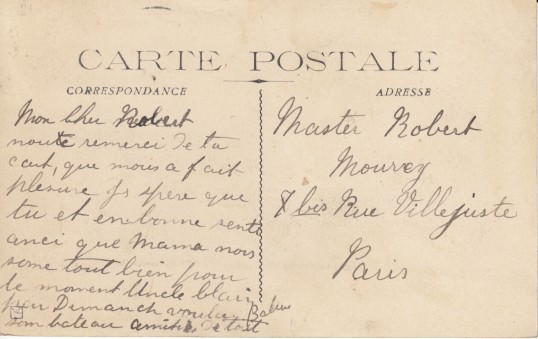 CARTE POSTALE
CORRESPONDANCE
ADRESSE
Mon Cher Robert
noute remerci de ta
cart, que mous a fait
plesure Js spere que
tu et en bonne sente
anci que Mama nois
some tout bien pour
le moment Uncle
Dimanch
som bateau amitié de tout
Master Robert
Mourey
8 bis Rue Villejuste
Paris